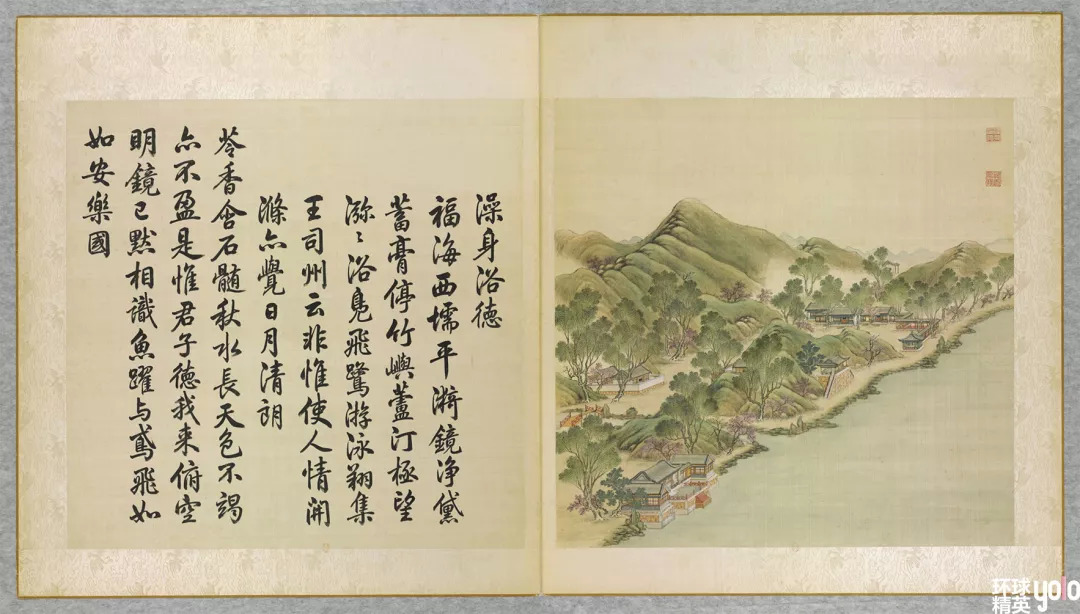 澡身浴德
福海西壖平漪鏡净黛
蓄膏停竹嶼蘆汀極望
㳽〻浴鳧飛鷺游泳翔集
王司州云非惟使人情開
滌亦覺日月清朗
苓香含石髓秋水長天色不竭
亦不盈是惟君子德我来俯空
明鏡已默相識魚躍与鳶飛如
如安樂國
环球
精英 yolo